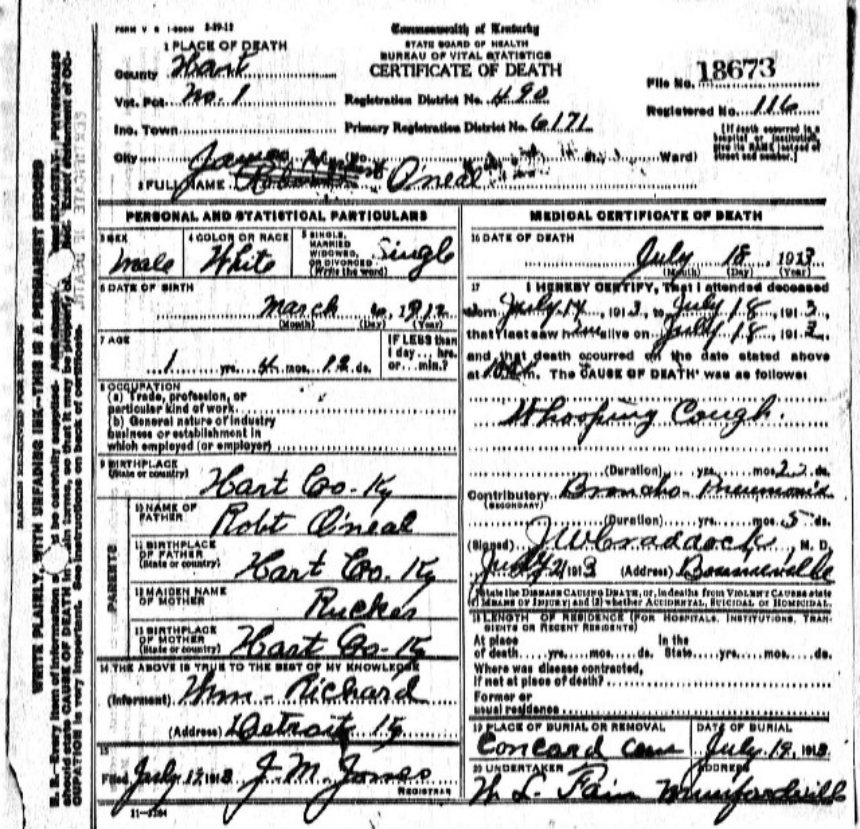 FORM V S 1-
Commonwealth of Kentucky
STATE BOARD OF HEALTH
BUREAU OF VITAL STATISTICS
CERTIFICATE OF DEATH
1 PLACE OF DEATH
County Hart
Vot. Pct. No. 1
Inc. Town
City
Registration District No. 490
Primary Registration District No. 6171
File No. 18673
Registered No. 116
[If death occurred in a
hospital or institution,
give its NAME instead of
street and number.]
Ward)
James
2 FULL NAME O'neal
PERSONAL AND STATISTICAL PARTICULARS
3 SEX
male
4 COLOR OR RACE
White
5 SINGLE,
MARRIED
WIDOWED,
OR DIVORCED
(Write the word)
Single
6 DATE OF BIRTH
March 6, 1912
(Month) (Day) (Year)
7 AGE
1 yrs. 4 mos. 12 ds.
IF LESS than
1 day... hrs.
or... min.?
8 OCCUPATION
(a) Trade, profession, or
particular kind of work
(b) General nature of industry
business or establishment in
which employed (or employer)
9 BIRTHPLACE
(State or country)
Hart Co. Ky
PARENTS
10 NAME OF
FATHER
Robt O'neal
11 BIRTHPLACE
OF FATHER
(State or country)
Hart Co. Ky
12 MAIDEN NAME
OF MOTHER
Rucker
13 BIRTHPLACE
OF MOTHER
(State or country)
Hart Co. Ky
14 THE ABOVE IS TRUE TO THE BEST OF MY KNOWLEDGE
(Informant) Wm. Richard
(Address) Detroit Ky
15
Filed July 1913 J. M. Jones
REGISTRAR
11-3284
MEDICAL CERTIFICATE OF DEATH
16 DATE OF DEATH
July 18, 1913
(Month) (Day) (Year)
17 I HEREBY CERTIFY, That I attended deceased
from July 14, 1913, to July 18, 1913,
that I last saw him alive on July 18, 1913,
and that death occurred on the date stated above
at m. The CAUSE OF DEATH was as follows:
Whooping Cough.
(Duration) yrs. mos. 22 ds.
Contributory Broncho-Pneumonia
(SECONDARY)
(Duration) yrs. mos. 5 ds.
(Signed) J W Craddock M. D.
July 21 1913 (Address) Bonnieville
State the DISEASE CAUSING DEATH, or, in deaths from VIOLENT CAUSES state
(1) MEANS OF INJURY; and (2) whether ACCIDENTAL, SUICIDAL OR HOMICIDAL.
18 LENGTH OF RESIDENCE (FOR HOSPITALS, INSTITUTIONS, TRAN-
SIENTS OR RECENT RESIDENTS)
At place In the
of death yrs. mos. ds. State yrs. mos. ds.
Where was disease contracted,
if not at place of death?
Former or
usual residence
19 PLACE OF BURIAL OR REMOVAL
Concord Cem
DATE OF BURIAL
July 19, 1913
20 UNDERTAKER
W L Fain
ADDRESS
Munfordville
MARGIN RESERVED FOR BINDING
WRITE PLAINLY, WITH UNFADING INK—THIS IS A PERMANENT RECORD